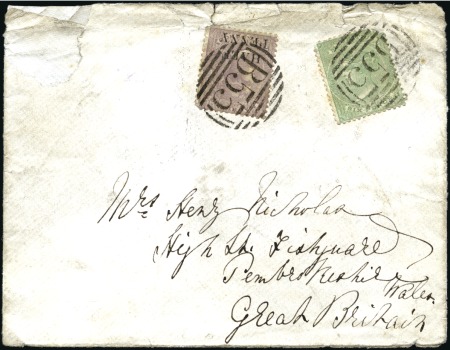 B53
B53
Mrs Henry Nicholas
High St. Fishguard
Pembrokeshire
Wales
Great Britain